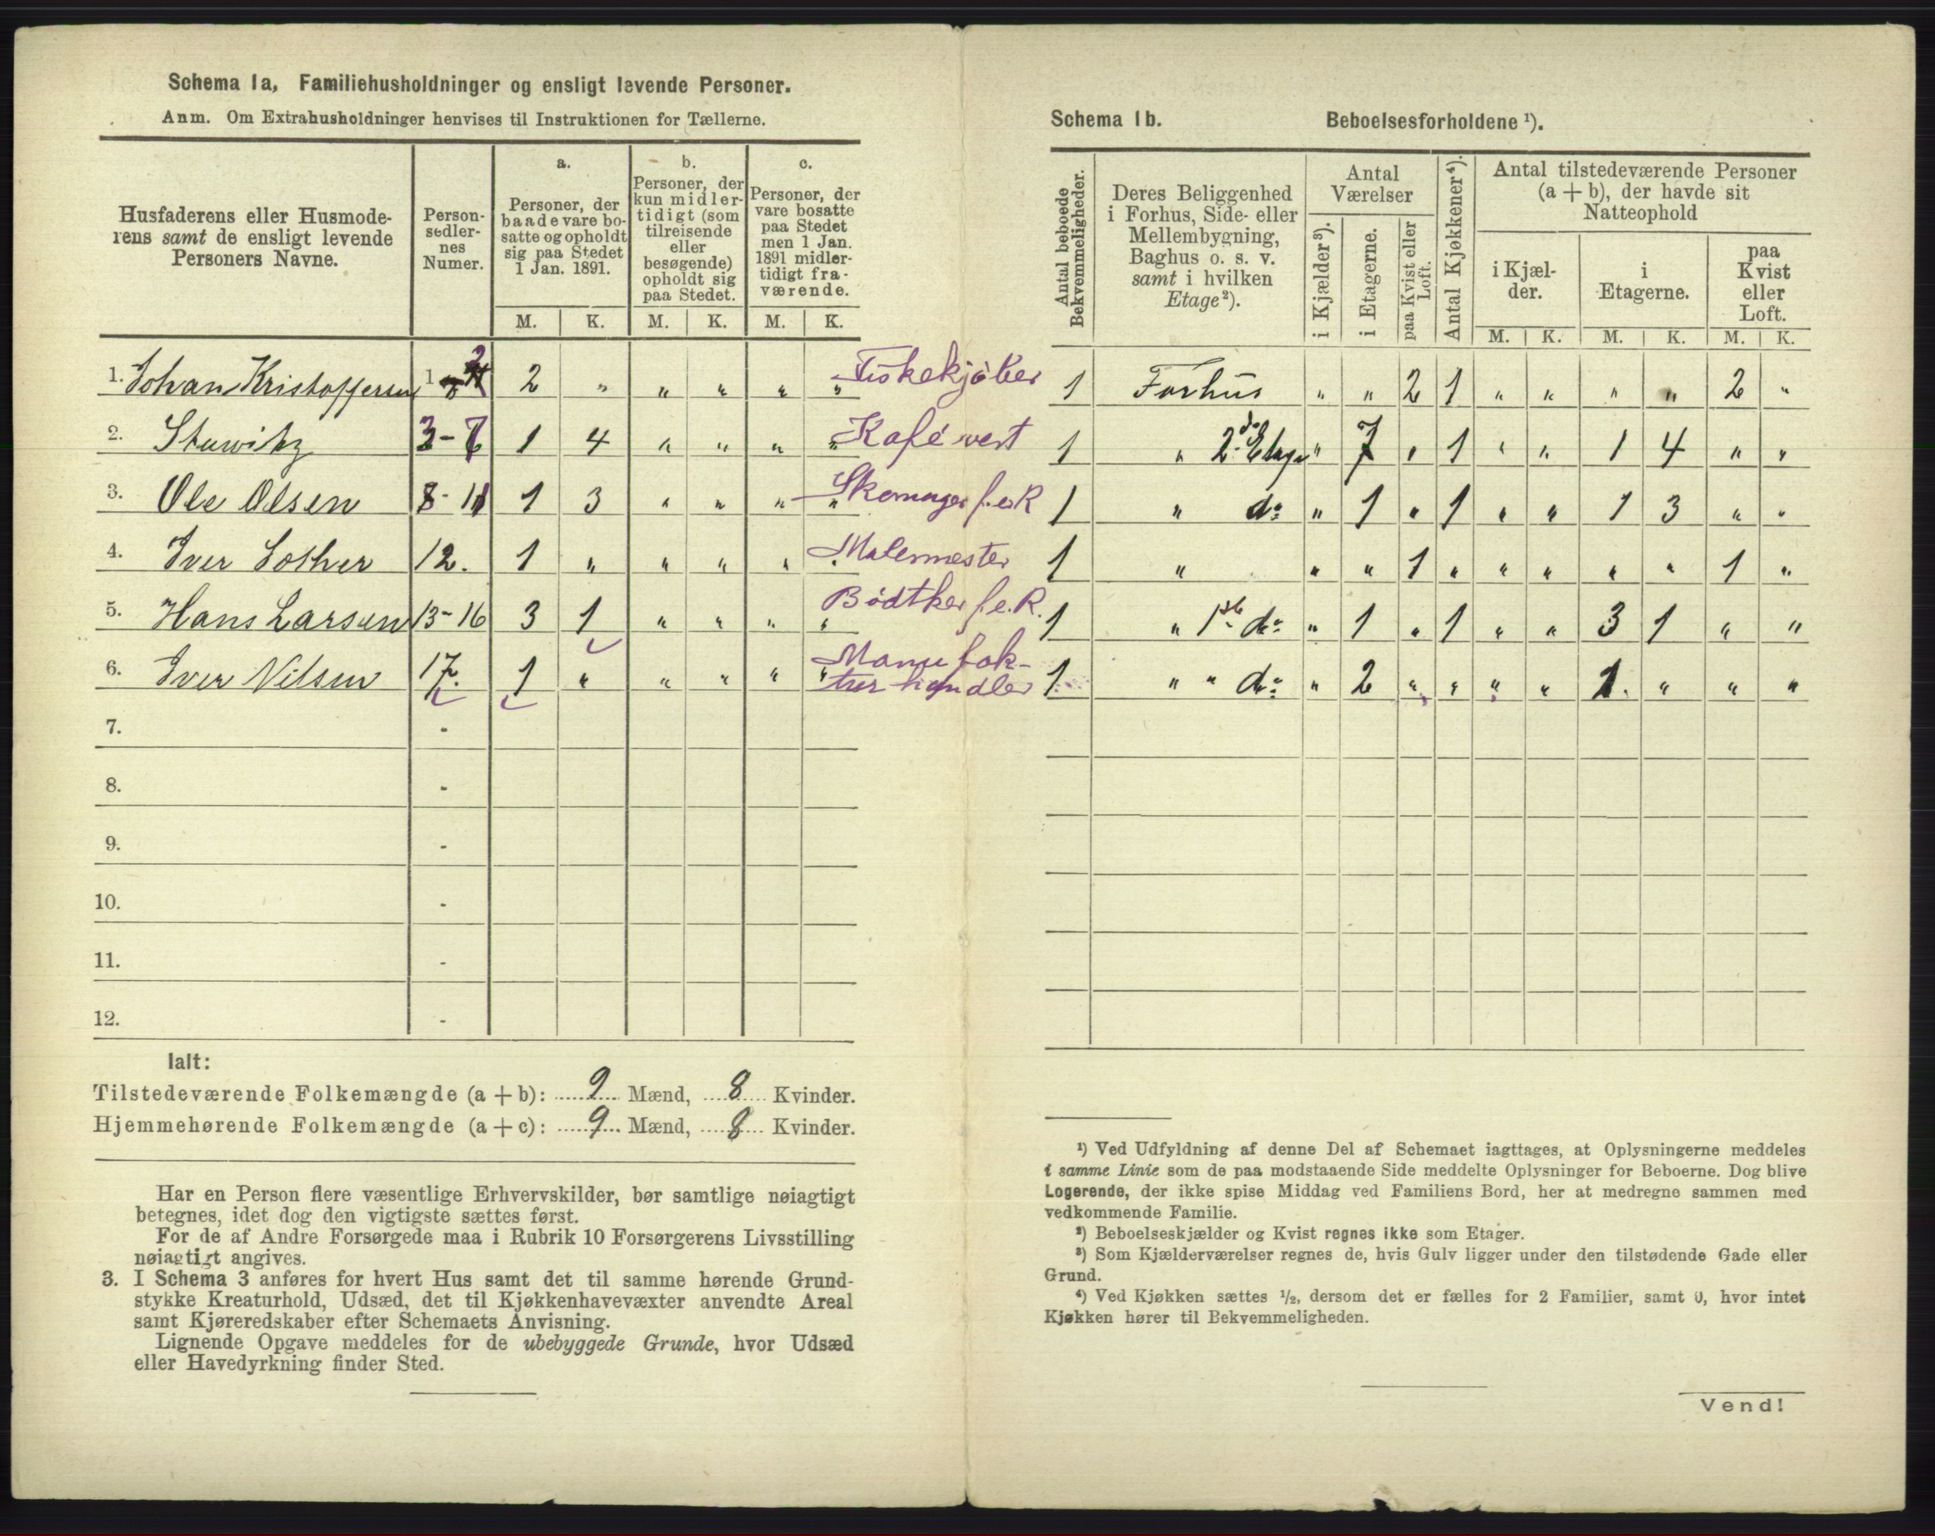 Schema 1a, Familiehusholdninger og ensligt levende Personer.
Anm. Om Extrahusholdninger henvises til Instruktionen for Tællerne.
Husfaderens eller Husmode-
rens samt de ensligt levende
Personers Navne.
Person-
sedler-
nes
Numer.
a.
Personer, der
baade vare bo-
satte og opholdt
sig paa Stedet
1 Jan. 1891.
b.
Personer, der
kun midler-
tidigt (som
tilreisende
eller
besøgende)
opholdt sig
paa Stedet.
c.
Personer, der
vare bosatte
paa Stedet
men 1 Jan.
1891 midler-
tidigt fra-
værende.
M. K. M. K. M. K.
1. Johan Kristoffersen 1-2 2 " " " " " Fiskekjøber
2. Stuwitz 3-7 1 4 " " " " Kafévert
3. Ole Olsen 8-11 1 3 " " " " Skomager f.e.R
4. Iver Lother 12. 1 " " " " " Malermester
5. Hans Larsen 13-16 3 1 " " " " Bødtker f.e.R.
6. Iver Nilsen 17. 1 " " " " " Manufak-
turhandler
7. -
8. -
9. -
10. -
11. -
12. -
Ialt:
Tilstedeværende Folkemængde (a + b): 9 Mænd, 8 Kvinder.
Hjemmehørende Folkemængde (a + c): 9 Mænd, 8 Kvinder.
Har en Person flere væsentlige Erhvervskilder, bør samtlige nøiagtigt
betegnes, idet dog den vigtigste sættes først.
For de af Andre Forsørgede maa i Rubrik 10 Forsørgerens Livsstilling
nøiagtigt angives.
3. I Schema 3 anføres for hvert Hus samt det til samme hørende Grund-
stykke Kreaturhold, Udsæd, det til Kjøkkenhavevæxter anvendte Areal
samt Kjøreredskaber efter Schemaets Anvisning.
Lignende Opgave meddeles for de ubebyggede Grunde, hvor Udsæd
eller Havedyrkning finder Sted.
Schema 1b. Beboelsesforholdene ¹).
Antal beboede
Bekvemmeligheder.
Deres Beliggenhed
i Forhus, Side- eller
Mellembygning,
Baghus o. s. v.
samt i hvilken
Etage²).
Antal
Værelser
i Kjælder³).
i Etagerne.
paa Kvist eller
Loft.
Antal Kjøkkener⁴).
Antal tilstedeværende Personer
(a + b), der havde sit
Natteophold
i Kjæl-
der.
i
Etagerne.
paa
Kvist
eller
Loft.
M. K. M. K. M. K.
1 Forhus " " 2 1 " " " " 2 "
1 " 2d Etage " 7 " 1 " " 1 4 " "
1 " do " 1 " 1 " " 1 3 " "
1 " " " 1 " " " " " 1 "
1 " 1ste do " 1 " 1 " " 3 1 " "
1 " " do " 2 " " " " 1. " " "
¹) Ved Udfyldning af denne Del af Schemaet iagttages, at Oplysningerne meddeles
i samme Linie som de paa modstaaende Side meddelte Oplysninger for Beboerne. Dog blive
Logerende, der ikke spise Middag ved Familiens Bord, her at medregne sammen med
vedkommende Familie.
²) Beboelseskjælder og Kvist regnes ikke som Etager.
³) Som Kjælderværelser regnes de, hvis Gulv ligger under den tilstødende Gade eller
Grund.
⁴) Ved Kjøkken sættes ½, dersom det er fælles for 2 Familier, samt 0, hvor intet
Kjøkken hører til Bekvemmeligheden.
Vend!